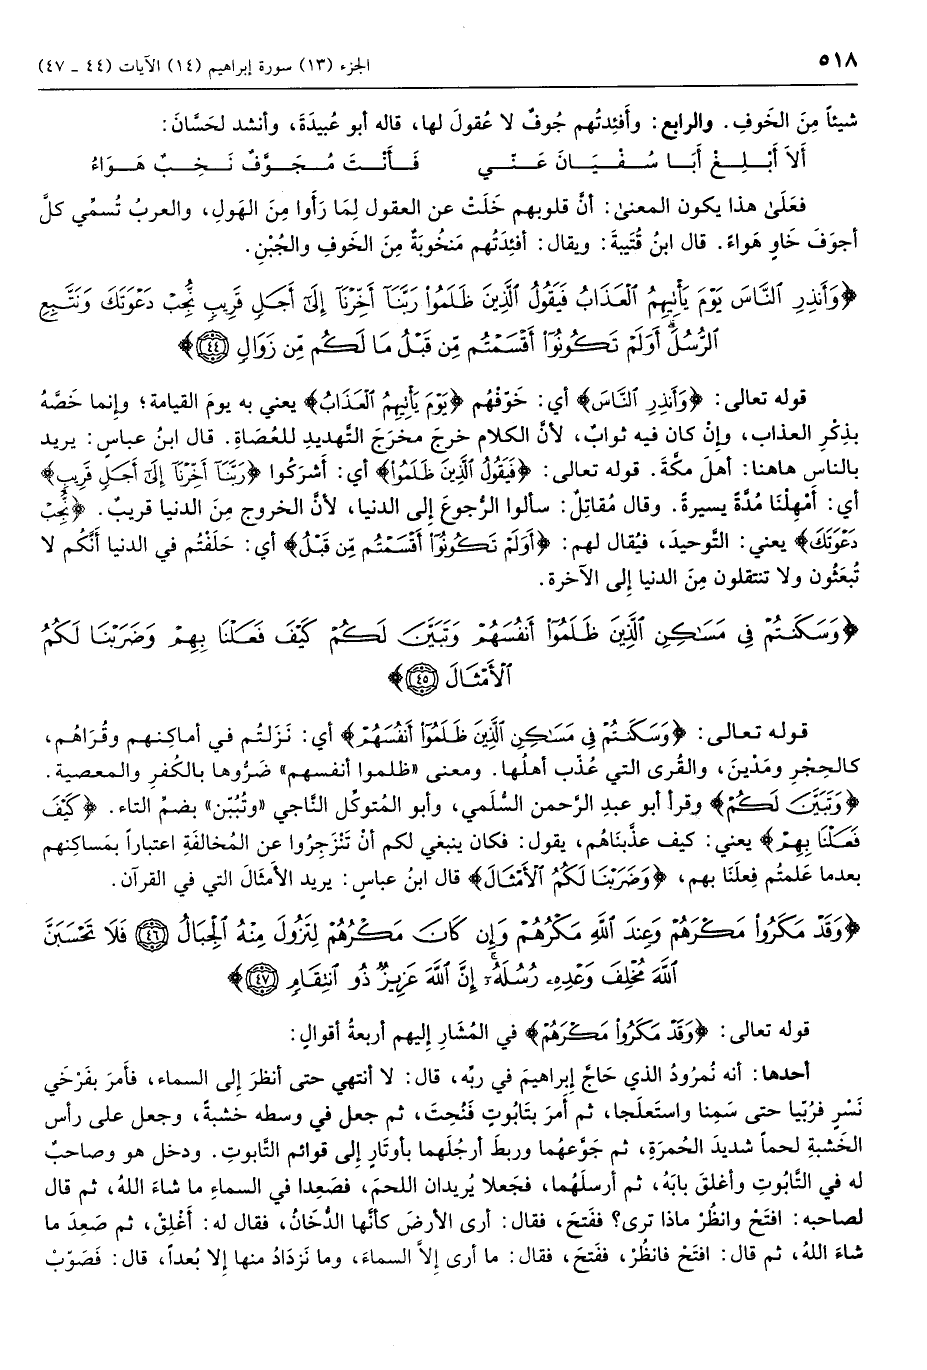 ٥١٨
الجزء (١٣) سورة إبراهيم (١٤) الآيات (٤٤ ـ ٤٧)
شيئاً مِنَ الخَوفِ. والرابع: وأَفئِدتُهم جُوفٌ لا عُقولَ لها، قاله أبو عبيدَةَ، وأنشد لحَسَّانَ:
أَلاَ أَبْلِغْ أَبَا سُفْيَانَ عَنِّي فَأَنْتَ مُجَوَّفٌ نَخِبٌ هَوَاءُ
فعَلَىٰ هذا يكون المعنىٰ: أنَّ قلوبهم خَلَتْ عن العقول لِمَا رَأَوا مِنَ الهَولِ، والعربُ تُسمِّي كلَّ
أجوَفَ خَاوٍ هَواءً. قال ابنُ قُتَيبةَ: ويقال: أفئِدَتُهم مَنخُوبَةٌ مِنَ الخَوفِ والجُبْنِ.
﴿وَأَنذِرِ ٱلنَّاسَ يَوْمَ يَأْتِيهِمُ ٱلْعَذَابُ فَيَقُولُ ٱلَّذِينَ ظَلَمُوا۟ رَبَّنَآ أَخِّرْنَآ إِلَىٰٓ أَجَلٍ قَرِيبٍ نُّجِبْ دَعْوَتَكَ وَنَتَّبِعِ
ٱلرُّسُلَ ۗ أَوَلَمْ تَكُونُوٓا۟ أَقْسَمْتُم مِّن قَبْلُ مَا لَكُم مِّن زَوَالٍ ﴿٤٤﴾﴾
قوله تعالى: ﴿وَأَنذِرِ ٱلنَّاسَ﴾ أي: خَوِّفْهُم ﴿يَوْمَ يَأْتِيهِمُ ٱلْعَذَابُ﴾ يعني به يومَ القيامة؛ وإنما خَصَّهُ
بذِكْرِ العذاب، وإنْ كان فيه ثوابٌ، لأنَّ الكلام خرجَ مخرَجَ التَّهديدِ للعُصَاةِ. قال ابنُ عباسٍ: يريد
بالناس هاهنا: أهلَ مكَّةَ. قوله تعالى: ﴿فَيَقُولُ ٱلَّذِينَ ظَلَمُوا۟﴾ أي: أَشرَكُوا ﴿رَبَّنَآ أَخِّرْنَآ إِلَىٰٓ أَجَلٍ قَرِيبٍ﴾
أي: أَمْهِلْنَا مُدَّةً يسيرةً. وقال مُقاتِلٌ: سألوا الرُّجوعَ إلى الدنيا، لأنَّ الخروج مِنَ الدنيا قريبٌ. ﴿نُّجِبْ
دَعْوَتَكَ﴾ يعني: التَّوحيدَ، فيُقال لهم: ﴿أَوَلَمْ تَكُونُوٓا۟ أَقْسَمْتُم مِّن قَبْلُ﴾ أي: حَلَفْتُم في الدنيا أَنَّكُم لا
تُبعَثُون ولا تنتقلون مِنَ الدنيا إلى الآخرة.
﴿وَسَكَنتُمْ فِى مَسَـٰكِنِ ٱلَّذِينَ ظَلَمُوٓا۟ أَنفُسَهُمْ وَتَبَيَّنَ لَكُمْ كَيْفَ فَعَلْنَا بِهِمْ وَضَرَبْنَا لَكُمُ
ٱلْأَمْثَالَ ﴿٤٥﴾﴾
قوله تعالى: ﴿وَسَكَنتُمْ فِى مَسَـٰكِنِ ٱلَّذِينَ ظَلَمُوٓا۟ أَنفُسَهُمْ﴾ أي: نَزَلتُم في أماكِنِهم وقُرَاهُم،
كالحِجْرِ ومَدْيَنَ، والقُرى التي عُذِّب أهلُها. ومعنى «ظلموا أنفسهم» ضَرُّوها بالكُفرِ والمعصية.
﴿وَتَبَيَّنَ لَكُمْ﴾ وقرأ أبو عبدِ الرَّحمن السُّلَمي، وأبو المُتوكِّل النَّاجي «وتُبُيِّن» بضمِّ التاء. ﴿كَيْفَ
فَعَلْنَا بِهِمْ﴾ يعني: كيف عذَّبنَاهُم، يقول: فكان ينبغي لكم أنْ تَنْزَجِرُوا عن المُخالفَةِ اعتباراً بمَساكِنهم
بعدما عَلمتُم فِعلَنَا بهم، ﴿وَضَرَبْنَا لَكُمُ ٱلْأَمْثَالَ﴾ قال ابنُ عباس: يريد الأمثَالَ التي في القرآن.
﴿وَقَدْ مَكَرُوا۟ مَكْرَهُمْ وَعِندَ ٱللَّهِ مَكْرُهُمْ وَإِن كَانَ مَكْرُهُمْ لِتَزُولَ مِنْهُ ٱلْجِبَالُ ﴿٤٦﴾ فَلَا تَحْسَبَنَّ
ٱللَّهَ مُخْلِفَ وَعْدِهِۦ رُسُلَهُۥٓ ۚ إِنَّ ٱللَّهَ عَزِيزٌ ذُو ٱنتِقَامٍ ﴿٤٧﴾﴾
قوله تعالى: ﴿وَقَدْ مَكَرُوا۟ مَكْرَهُمْ﴾ في المُشَارِ إليهم أربعةُ أقوالٍ:
أحدها: أنه نُمرُودُ الذي حَاجَّ إبراهيمَ في ربِّه، قال: لا أنتهي حتى أنظرَ إلى السماء، فأَمرَ بفَرْخَي
نَسْرٍ فرُبِّيا حتى سَمِنا واستَعلَجا، ثم أَمرَ بتَابُوتٍ فَنُحِتَ، ثم جعل في وسطه خشبةً، وجعل على رأس
الخَشبةِ لحماً شديدَ الحُمرَةِ، ثم جَوَّعهُما وربطَ أرجُلَهما بأوتَارٍ إلى قوائم التَّابوتِ. ودخل هو وصاحبٌ
له في التَّابُوتِ وأغلقَ بابَهُ، ثم أرسلَهُما، فجَعلا يُريدان اللحمَ، فصَعِدا في السماءِ ما شاءَ اللهُ، ثم قال
لصاحبه: افتَحْ وانظُرْ ماذا ترى؟ ففتَحَ، فقال: أرى الأرضَ كأنَّها الدُّخَانُ، فقال له: أَغْلِقْ، ثم صَعِدَ ما
شاءَ اللهُ، ثم قال: افتَحْ فانظُرْ، ففتَحَ، فقال: ما أرى إلاَّ السماءَ، وما نَزدَادُ منها إلا بُعداً، قال: فَصَوِّبْ